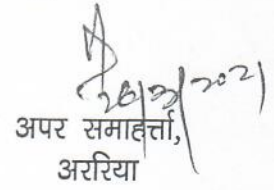 26/3/2021
अपर समाहर्त्ता,
अररिया